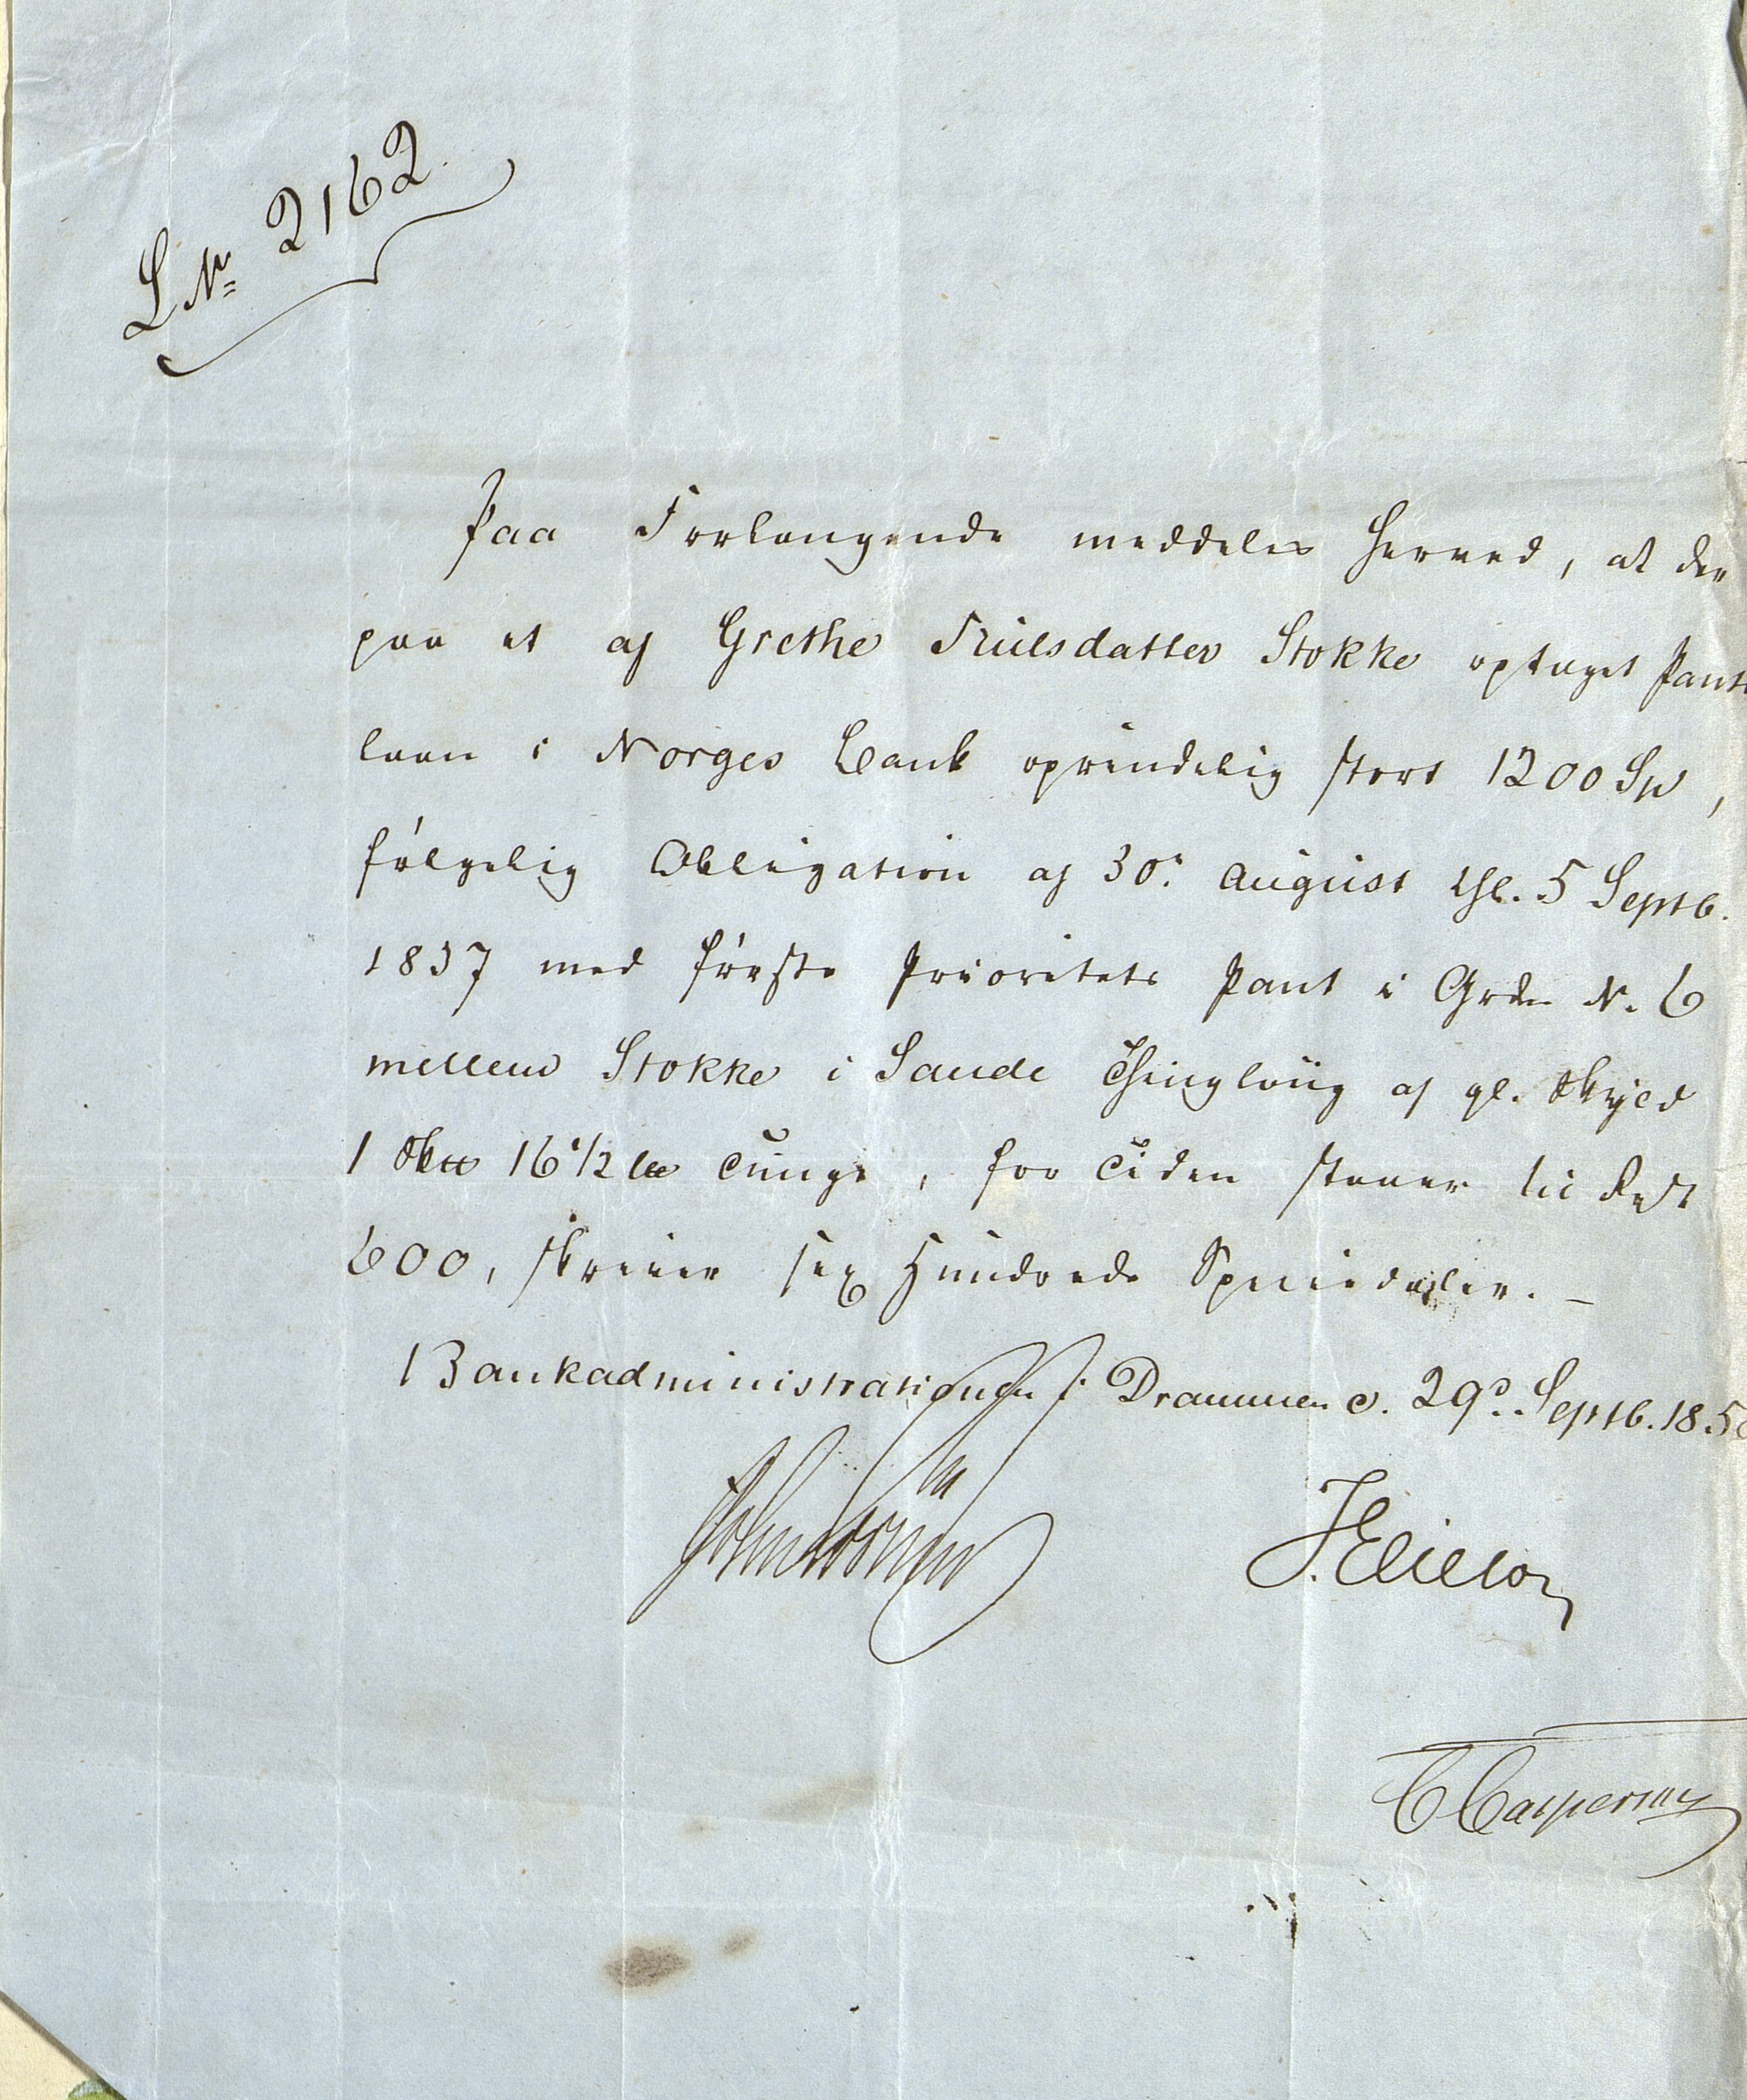 L No 2162
Paa Forlangende meddeles herved, at der
paa et af Grethe Truls­datter Stokke optaget Pante
laan i Norges Bank oprindelig stort 1200 Sp,
følgelig Obligation af 30. August thl. 5 Septb.
1837 med første Prioritets Pant i Grdn N. 6
mellem Stokke i Sande Thinglaug af gl. Skyld
1 Skt 16 1/2 lb Tunge, for Tiden staaer til Rest
600, skriver sex Hundrede Speciedaler. –
Bankadministrationen i Drammen d. 29d. Septb. 185
J. Eielson
C Caspersen